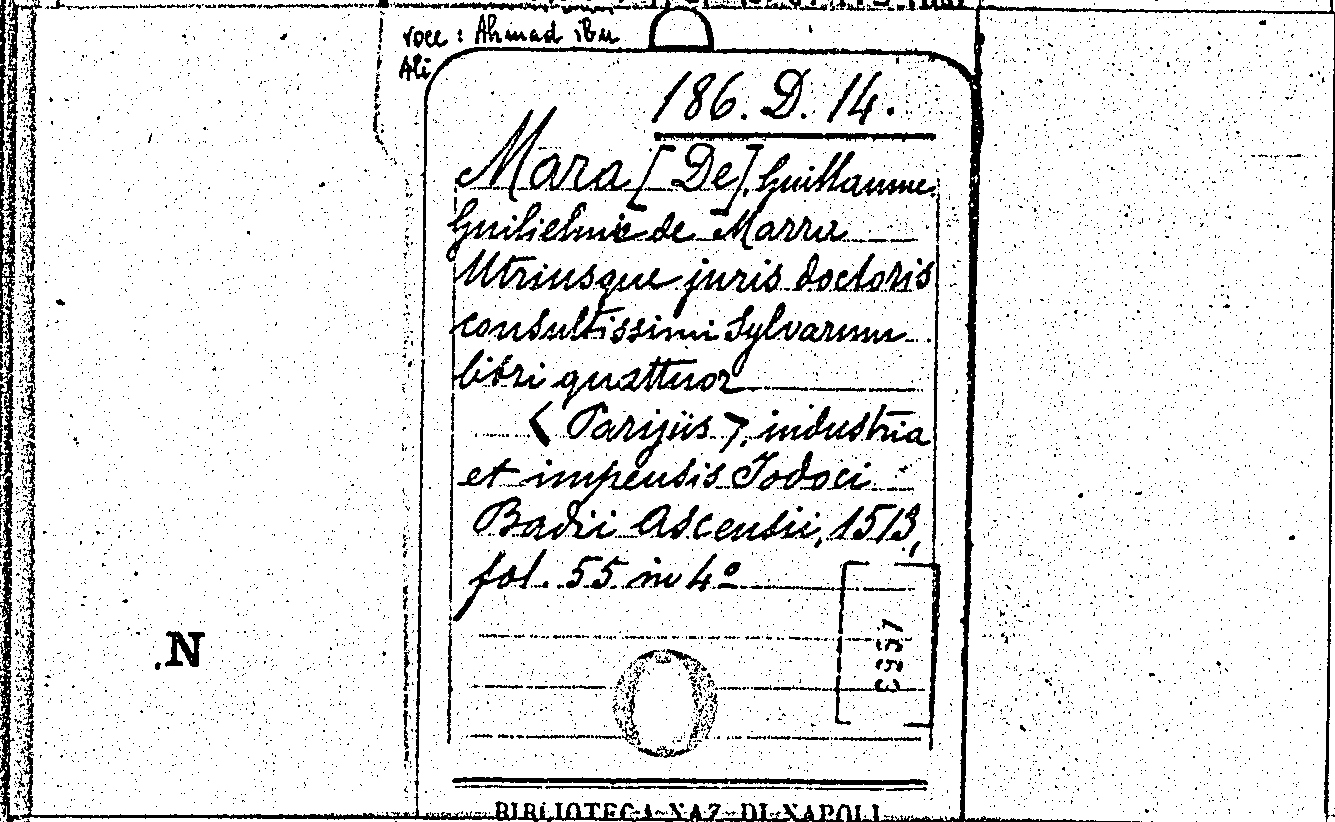 voce : Ahmad ibn
Ali
186. D. 14.
Mara [De] Guillaume.
Guilielmi de Marra
Utriusque juris doctoris
consultissimi Sylvarum
libri quattuor
< Parijiis >, industria
et impensis Jodoci
Badii Ascensii, 1513,
fol. 55 in 4º
.N
BIBLIOTECA NAZ. DI NAPOLI